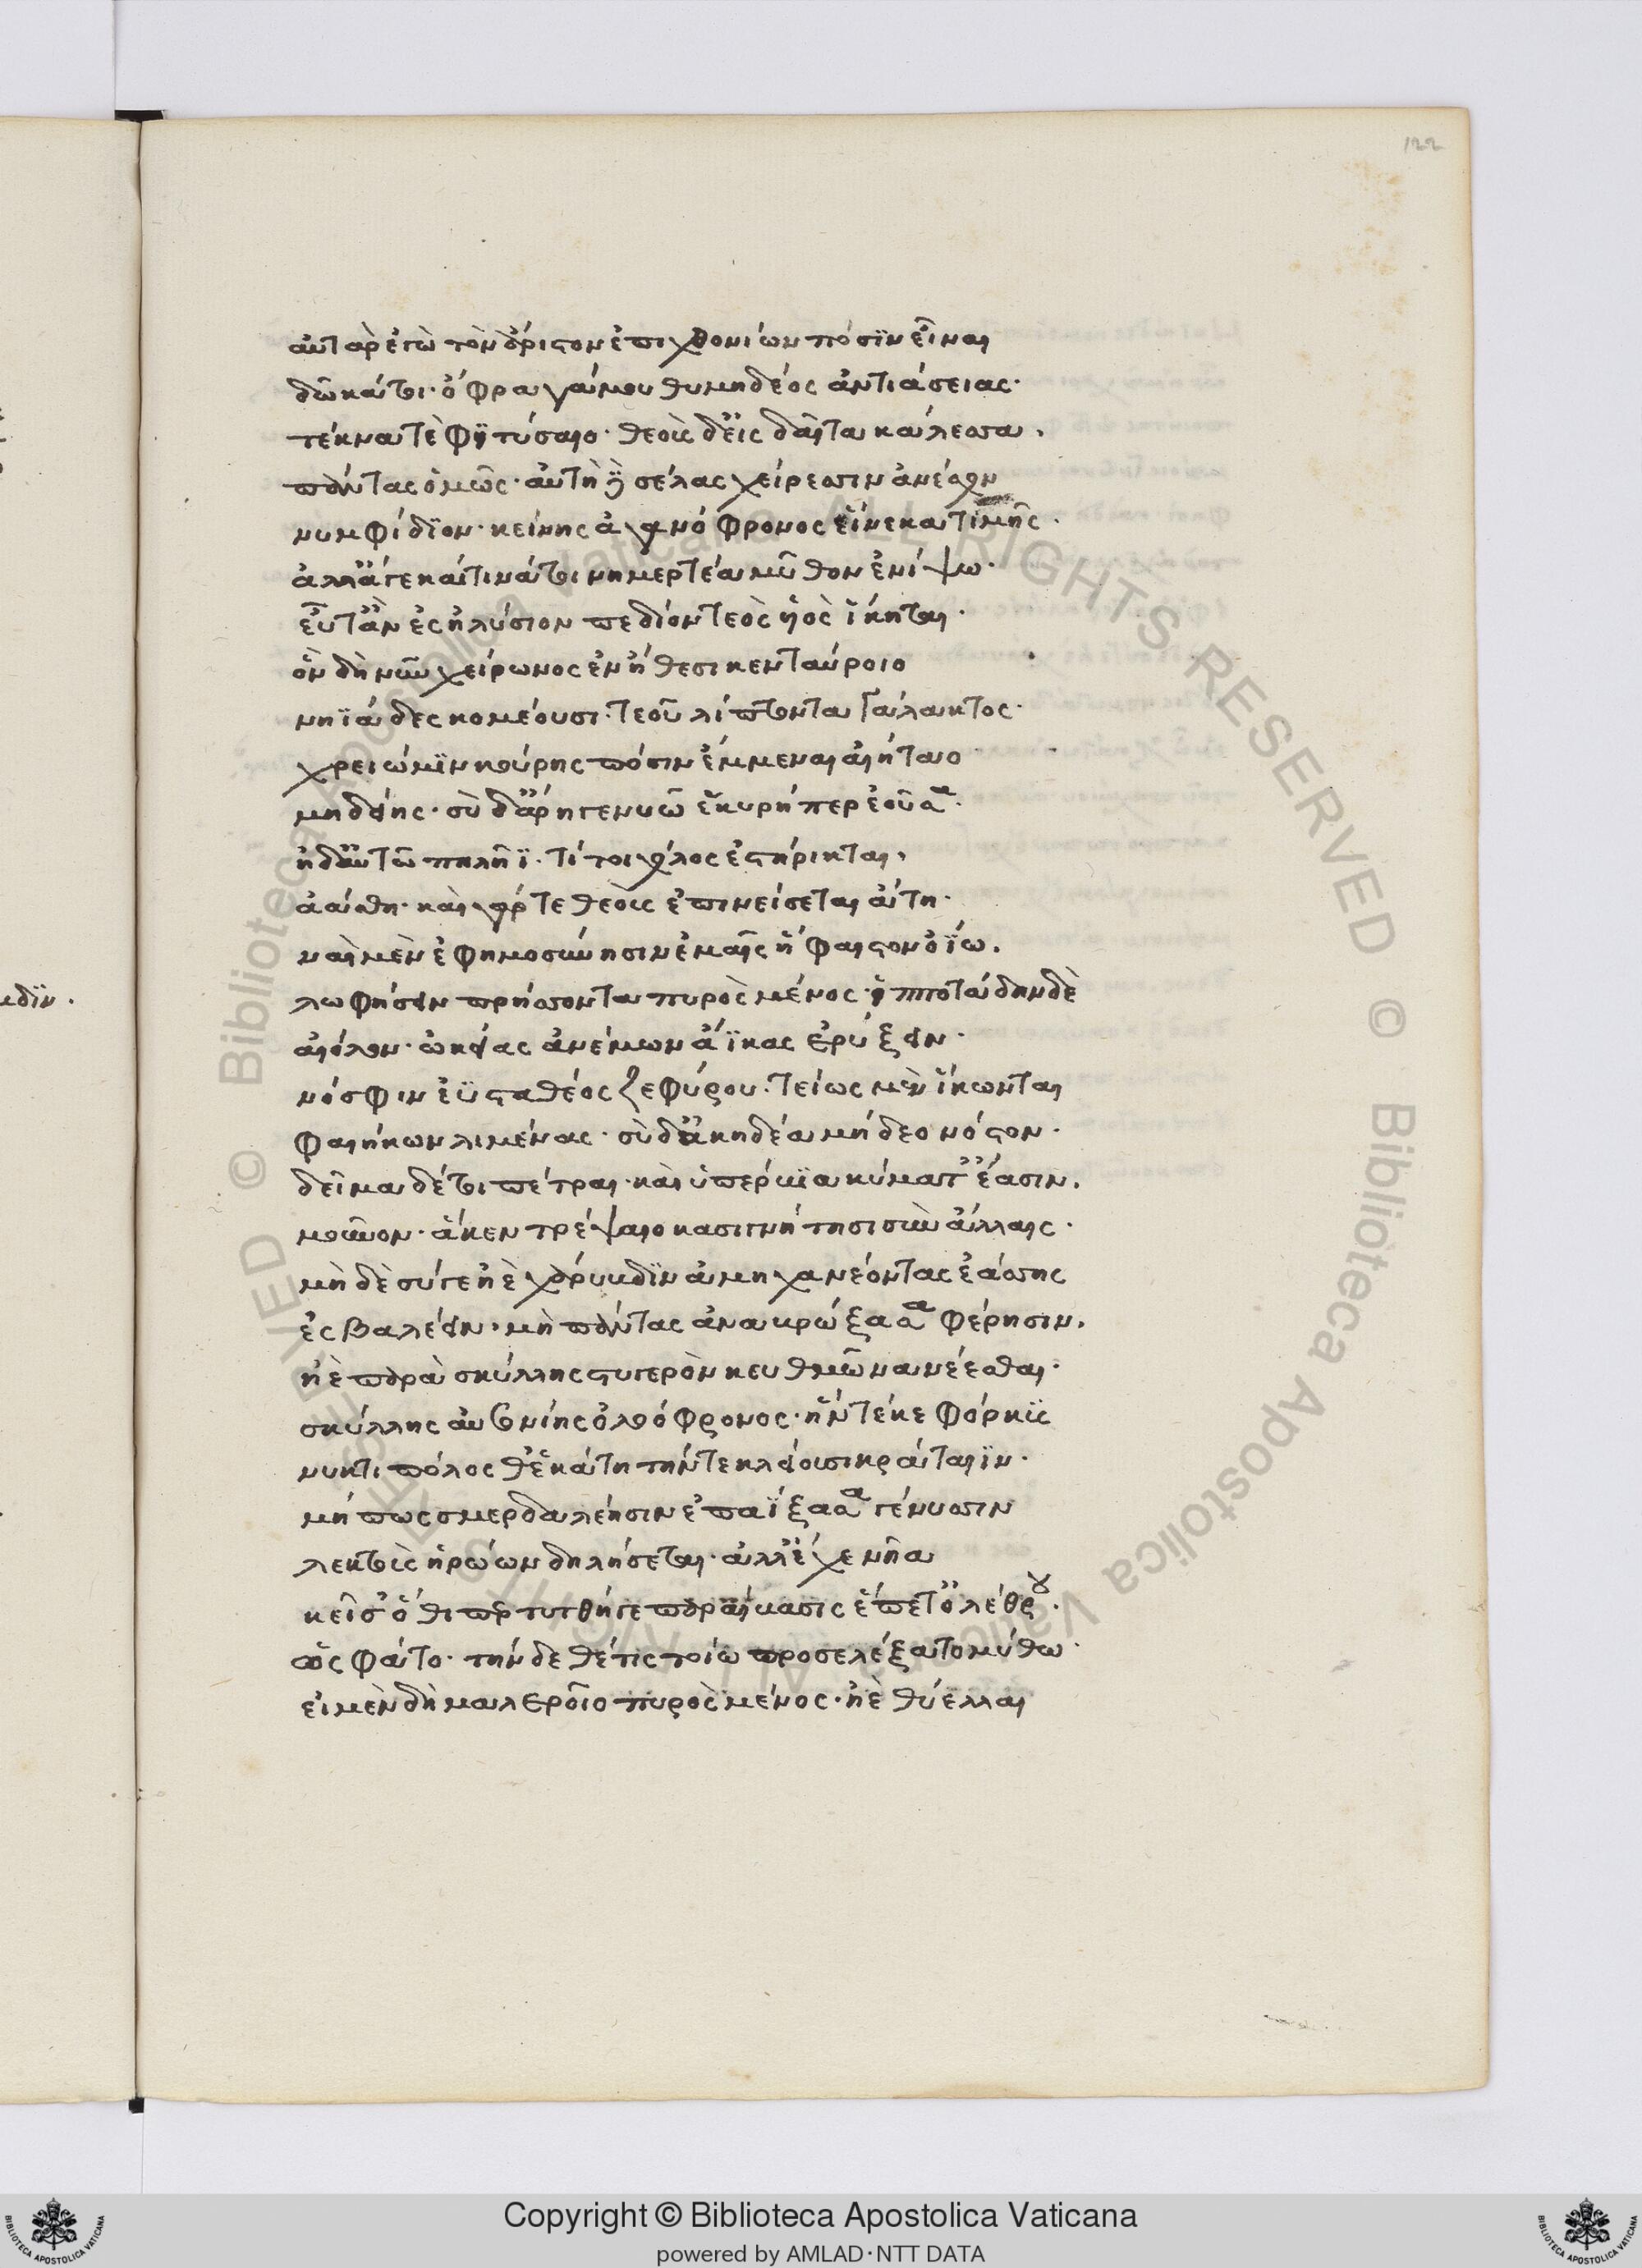 αὐτὰρ ἐγὼ τὸν ἄριστον ἐπιχθονίων πόσϊν εἶναι
δῶκά τοι· ὄφρα γάμου θυμηδέος ἀντιάσειας·
τέκνα τὲ φϊτύσαιο· θεοὺς δ' εἰς δαῖτα κάλεσσα.
πάντας ὁμῶς· αὐτὴ δὲ σέλας χείρεσσιν ἀνέσχον
νυμφίδϊον· κείνης ἀγανόφρονος εἵνεκα τιμῆς.
ἀλλ' ἄγε καί τινά τοι νημερτέα μῦθον ἐνίψω·
εὖτ' ἂν ἐς ἠλύσιον πεδίον τεὸς υἱὸς ἵκηται.
ὃν δὴ νῦν χείρωνος ἐν ἤθεσι κενταύροιο
νηϊάδες κομέουσι· τεοῦ λίπτοντα γάλακτος·
χρειώ μϊν κούρης πόσιν ἔμμεναι αἰήταο
μηδείης· σὺ δ' ἄρηγε νυῶ ἑκυρή περ ἐοῦσα·
ἠδ' αὐτῶ πηλῆϊ· τί τοι χόλος ἐστήρικται.
ἀάσθη· καὶ γάρ τε θεοὺς ἐπινείσεται ἄτη·
ναὶ μὲν ἐφημοσύνησιν ἐμαῖς ἥφαιστον ὀΐω.
λωφήσειν πρήσσοντα πυρὸς μένος· ἱπποτάδην δὲ
αἴολον· ὠκείας ἀνέμων ἄϊκας ἐρύξειν·
νόσφιν ἐϋσταθέος ζεφύρου· τείως μὲν ἵκωνται
φαιήκων λιμένας· σὺ δ' ἀκηδέα μήδεο νόστον·
δεῖμα δέ τοι πέτραι· καὶ ὑπέρβϊα κύματ' ἔασιν.
μοῦνον· ἅ κεν τρέψαιο κασιγνήτησι σὺν ἄλλαις·
μὴ δὲ σύ γε ἠὲ χάρυβδϊν ἀμηχανέοντας ἐάσσης
ἐς βαλέειν· μὴ πάντας ἀναβρώξασα φέρησιν.
ἠὲ παρὰ σκύλλης στυγερὸν κευθμῶνα νέεσθαι·
σκύλλης αὐσονίης ὀλοόφρονος· ἣν τέκε φόρκϋς
νυκτιπόλος θ' ἑκάτη τήν τε κλείουσι κράταιϊν·
μή πως σμερδαλέησιν ἐπαΐξασα γένυσσιν
λεκτοὺς ἡρώων δηλήσεται· ἀλλ' ἔχε νῆα
κεῖσ' ὅθι περ τυτθή γε παραίβασις ἔσσετ' ὀλέθρου.
ὣς φάτο· τὴν δὲ θέτις τοίω προσελέξατο μύθω·
εἰ μὲν δὴ μαλεροῖο πυρὸς μένος· ἠὲ θύελλαι
122
βδϊν.
Copyright © Biblioteca Apostolica Vaticana
powered by AMLAD·NTT DATA